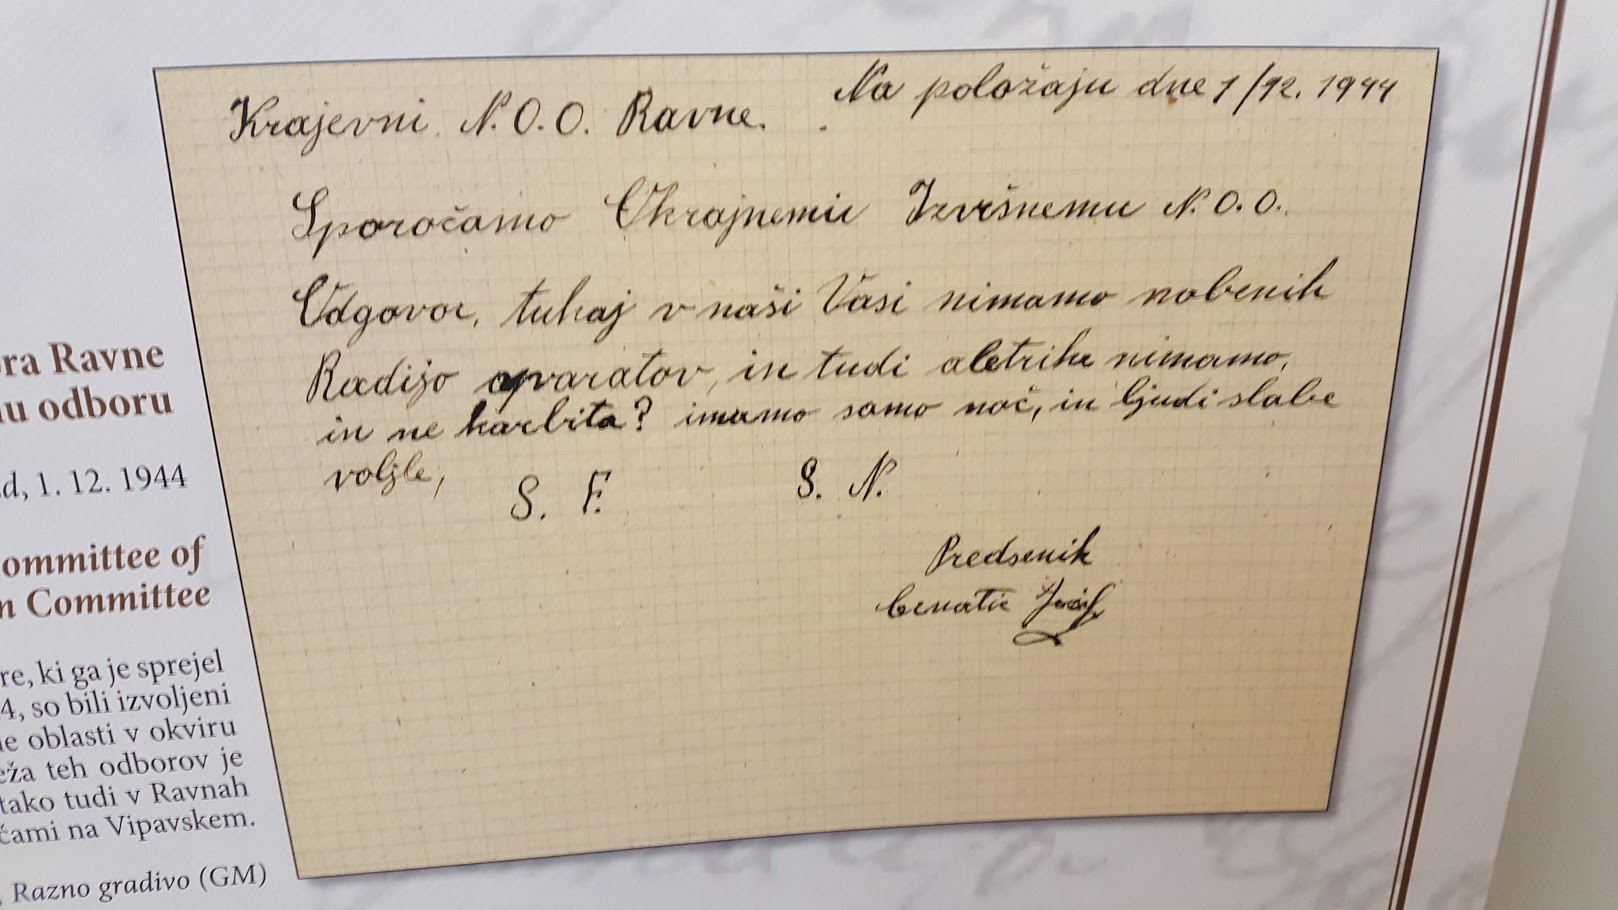 Krajevni N.O.O. Ravne.
Na položaju dne 1/12. 1944
Sporočamo Okrajnemu Izvršnemu N.O.O.
Odgovor, tukaj v naši Vasi nimamo nobenih
Radijo aparatov, in tudi aletrike nimamo,
in ne karbita? imamo samo noč, in ljudi slabe
voljle,
S. F. S. N.
Predsenik
ra Ravne
u odboru
d, 1. 12. 1944
ommittee of
n Committee
re, ki ga je sprejel
4, so bili izvoljeni
e oblasti v okviru
eža teh odborov je
tako tudi v Ravnah
čami na Vipavskem.
, Razno gradivo (GM)